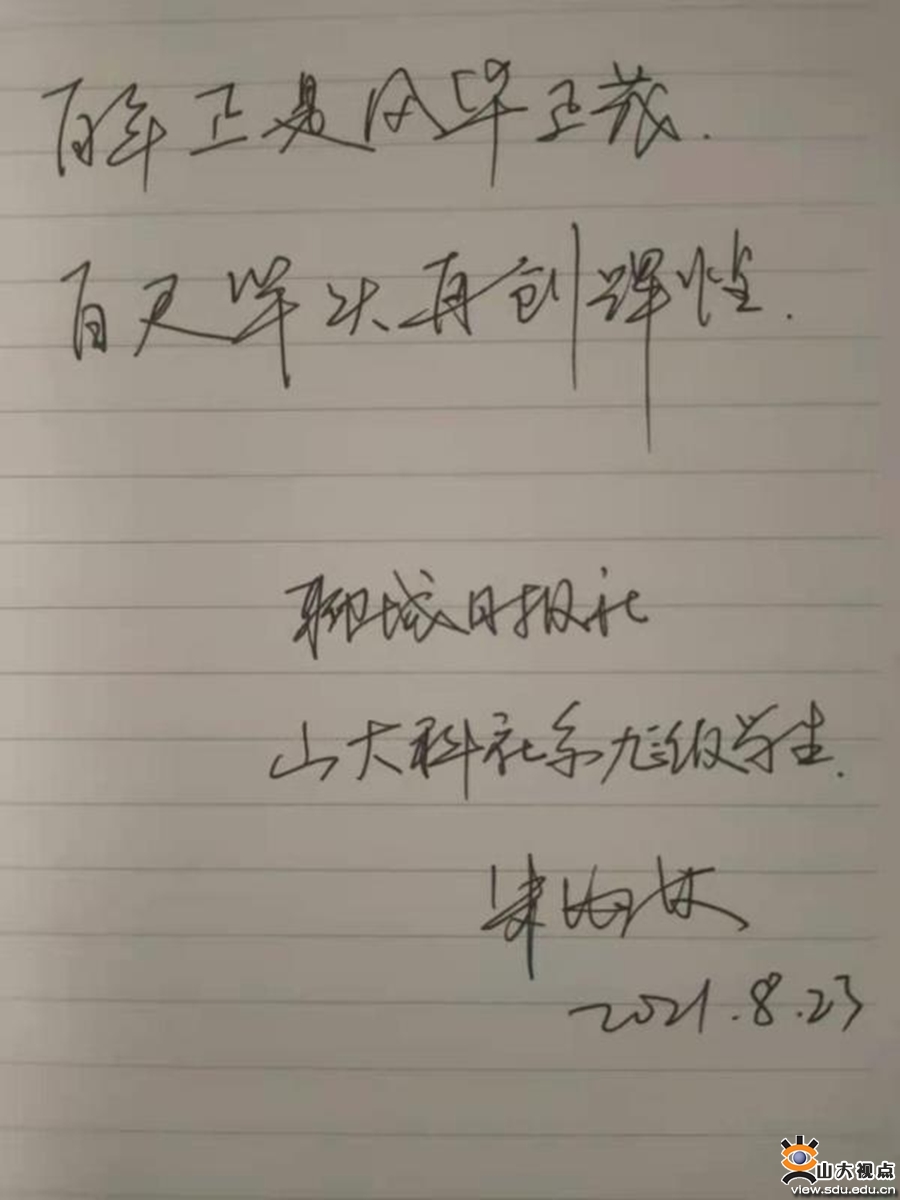 百年正是风华正茂.
百廿华诞再创辉煌.
聊城日报社
山大科社系九一级学生.
朱海波
2021.8.23
山大视点
view.sdu.edu.cn